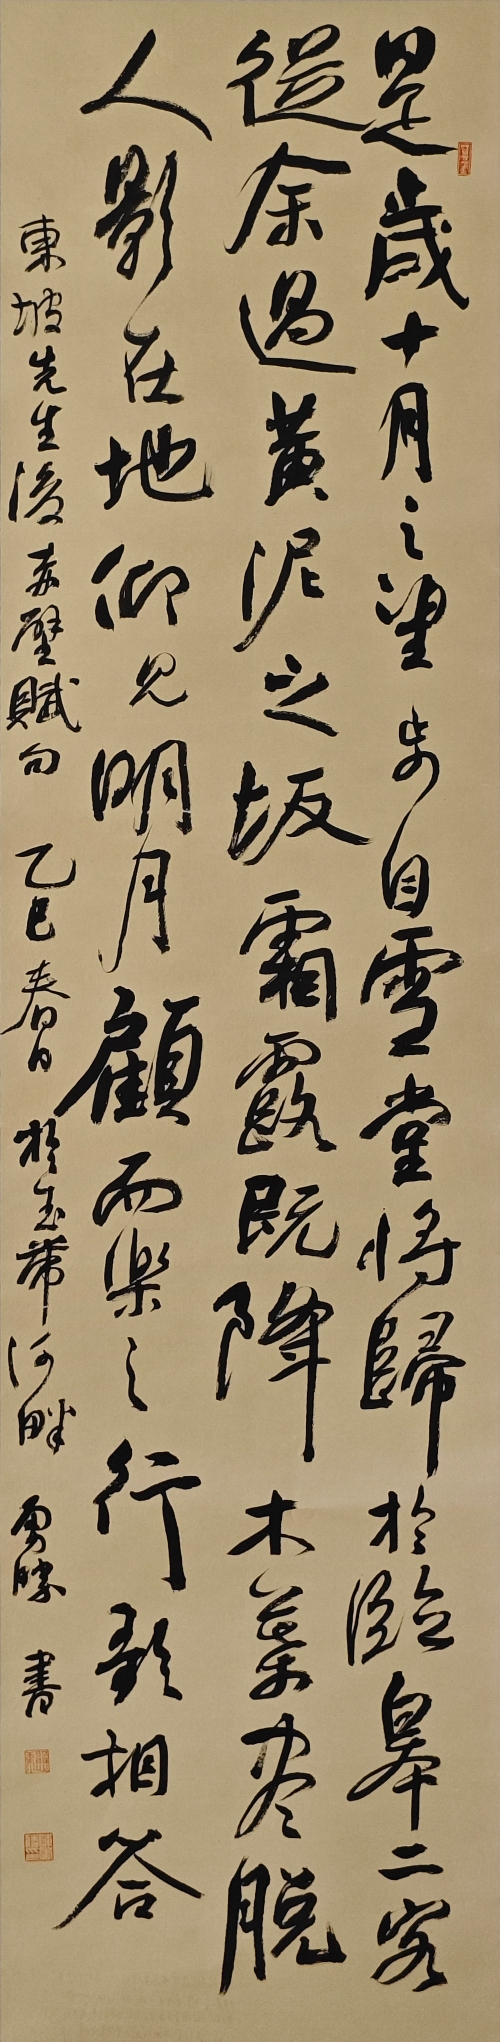 是歲十月之望步自雪堂將歸於臨皋二客
從余過黃泥之坂霜露既降木葉盡脫
人影在地仰見明月顧而樂之行歌相答
東坡先生後赤壁賦句 乙巳春日 於玉帶河畔 勇勝 書